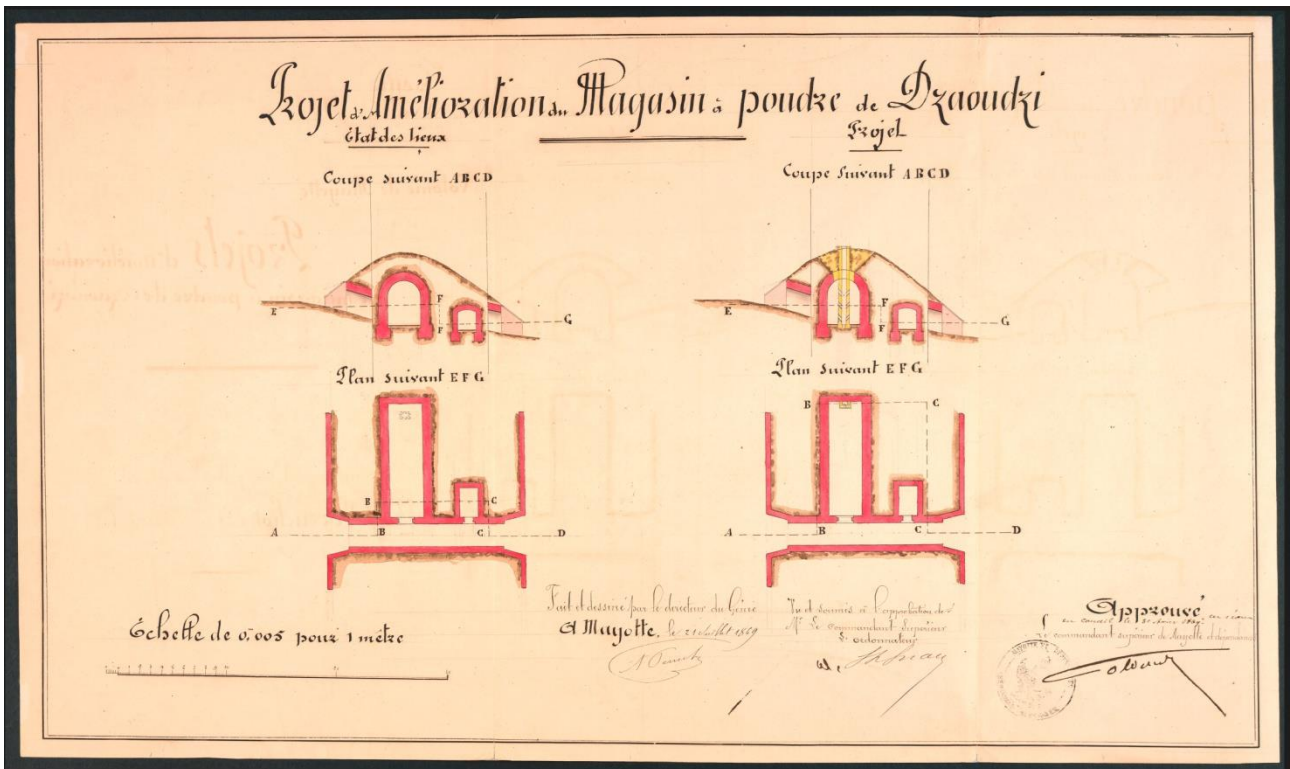 Projet d'Amélioration du Magasin à poudre de Dzaoudzi
État des lieux
Coupe suivant A B C D
E
F
F
G
Plan suivant E F G
B
C
A
B
C
D
Projet
Coupe suivant A B C D
E
F
F
G
Plan suivant E F G
B
C
A
B
C
D
Echelle de 0,005 pour 1 mètre
Fait et dessiné par le directeur du Génie
A Mayotte, le 21 Juillet 1869
Vu et soumis à l'approbation de
Mr Le commandant Supérieur
L'ordonnateur
Approuvé
en conseil le
Le commandant supérieur de Mayotte et dépendances